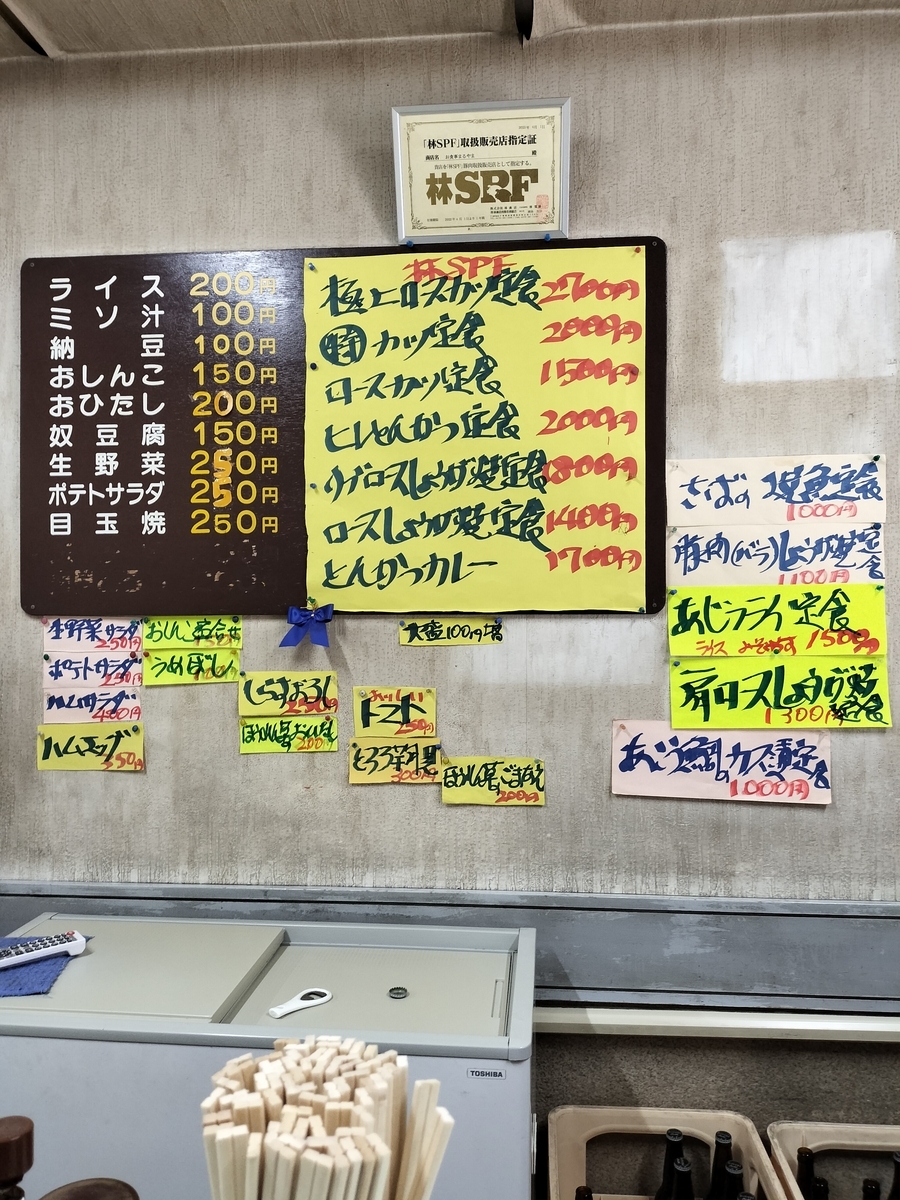 「林SPF」取扱販売店指定証
商店名 お食事まるやま 殿
林SPF
ライス 200円
ミソ汁 100円
納豆 100円
おしんこ 150円
おひたし 200円
奴豆腐 150円
生野菜 250円
ポテトサラダ 250円
目玉焼 250円
林SPF
極上ロースカツ定食 2700円
特カツ定食 2000円
ロースカツ定食 1500円
ヒレとんかつ定食 2000円
リブロースしょうが焼定食 1800円
ロースしょうが焼定食 1400円
とんかつカレー 1700円
さばの焼魚定食 1000円
豚肉(バラ)しょうが焼定食 1100円
あじフライ定食
ライス みそ汁付 1500円
肩ロースしょうが焼定食 1300円
1000円
生野菜サラダ 250円
ポテトサラダ 250円
ハムサラダ 400円
ハムエッグ 350円
おしんこ盛合せ
うめぼし 100円
しらすおろし 250円
ほうれん草おひたし 200円
大盛100円増
おいしい
トマト 250円
とろろ 300円
ほうれん草のごまあえ 200円
TOSHIBA